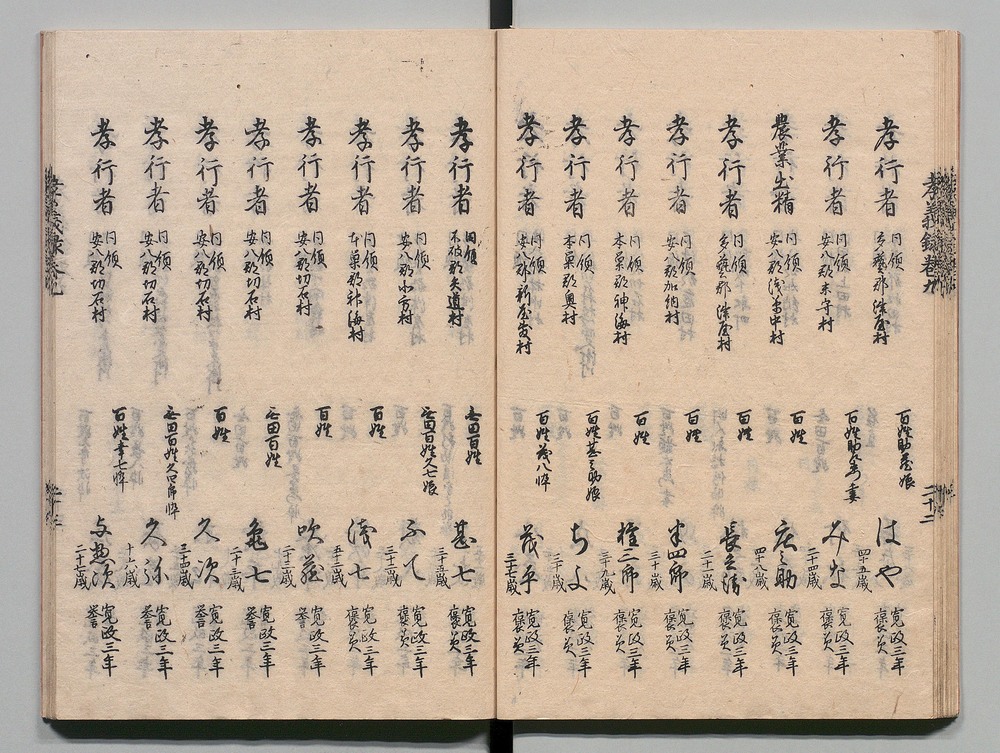 孝義録巻九
孝行者 同領 多藝郡津屋村 百姓助蔵娘 はや 四十五歳 寛政三年 褒美
孝行者 同領 安八郡末守村 百姓助 妻 みな 二十四歳 寛政三年 褒美
農業出精 同領 安八郡浅草中村 百姓 庄之助 四十八歳 寛政三年 褒美
孝行者 同領 多藝郡津屋村 百姓 長 二十一歳 寛政三年 褒美
孝行者 同領 安八郡加納村 百姓 半四郎 三十歳 寛政三年 褒美
孝行者 同領 本巣郡神海村 百姓 権三郎 三十九歳 寛政三年 褒美
孝行者 同領 本巣郡奥村 百姓甚之助娘 ちよ 寛政三年 褒美
孝行者 同領 安八郡新屋敷村 百姓茂八悴 茂平 三十七歳 寛政三年 褒美
二十二
孝行者 同領 不破郡矢道村 無田百姓 甚七 三十五歳 寛政三年 褒美
孝行者 同領 安八郡小方村 無田百姓久七娘 ふて 三十三歳 寛政三年 褒美
孝行者 同領 本巣郡神海村 百姓 浅七 五十三歳 寛政三年 褒美
孝行者 同領 安八郡切石村 百姓 吹蔵 三十三歳 寛政三年 誉
孝行者 同領 安八郡切石村 無田百姓 亀七 二十三歳 寛政三年 誉
孝行者 同領 安八郡切石村 百姓 久次 三十四歳 寛政三年 誉
孝行者 同領 安八郡切石村 無田百姓久四郎悴 久弥 十六歳 寛政三年 誉
孝行者 同領 安八郡切石村 百姓幸七悴 与惣次 二十三歳 寛政三年 誉
孝義録巻九
二十三